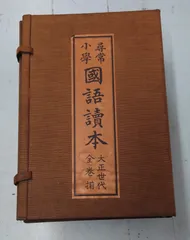 尋常
小學
國語讀本
大正世代
全巻揃